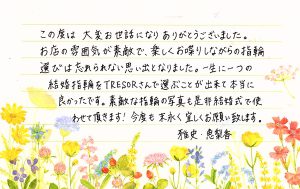 この度は 大変お世話になりありがとうございました。
お店の雰囲気が素敵で、楽しくお喋りしながらの指輪
選びは忘れられない思い出となりました。一生に一つの
結婚指輪をTRESORさんで選ぶことが出来て本当に
良かったです。素敵な指輪の写真も是非結婚式で使
わせて頂きます！今度も末永く宜しくお願い致します。
雅史・恵梨香